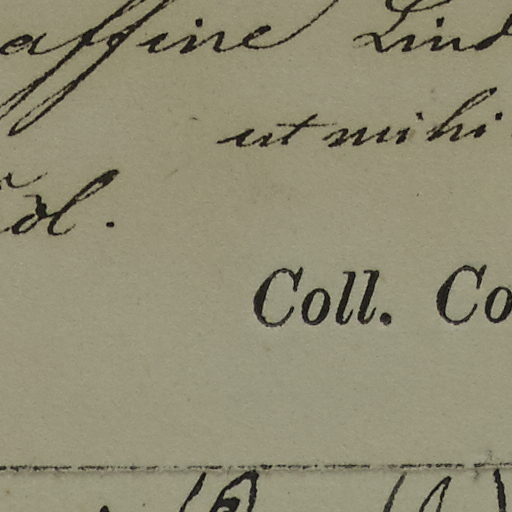 affine Lind
ut mihi
Coll. Co